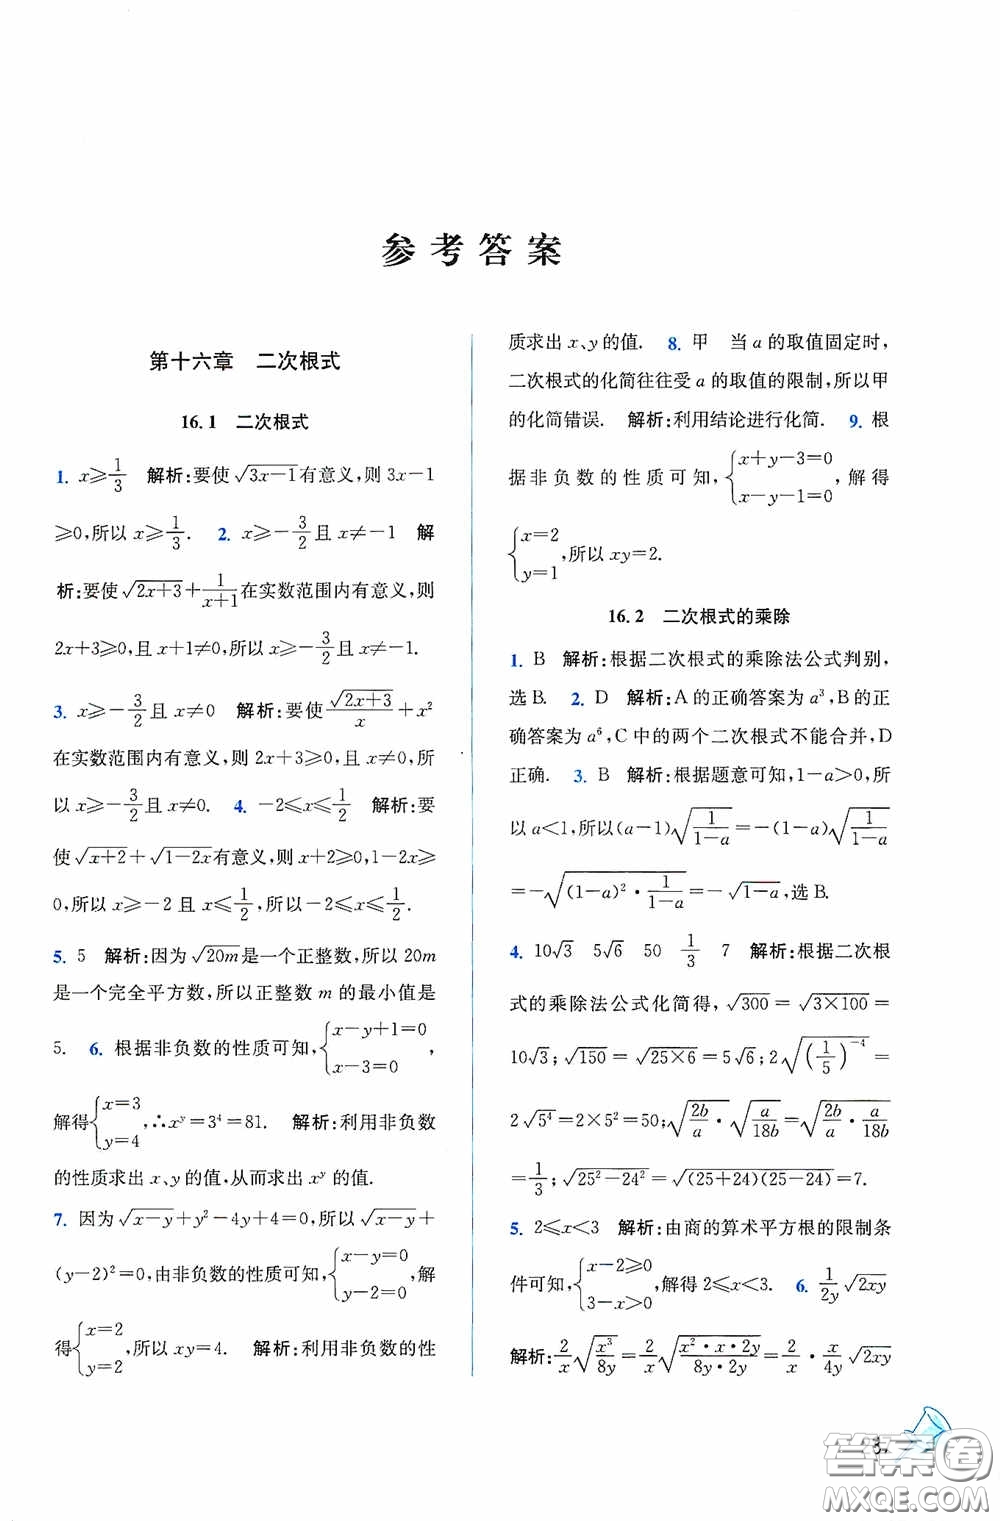 参考答案
第十六章 二次根式
16.1 二次根式
1. x≥1/3 解析:要使√(3x-1)有意义,则 3x-1
≥0,所以 x≥1/3. 2. x≥-3/2且 x≠-1 解
析:要使√(2x+3)+1/(x+1)在实数范围内有意义,则
2x+3≥0,且 x+1≠0,所以 x≥-3/2且 x≠-1.
3. x≥-3/2且 x≠0 解析:要使√(2x+3)/x+x²
在实数范围内有意义,则 2x+3≥0,且 x≠0,所
以 x≥-3/2且 x≠0. 4. -2≤x≤1/2 解析:要
使√(x+2)+√(1-2x)有意义,则 x+2≥0,1-2x≥
0,所以 x≥-2 且 x≤1/2,所以-2≤x≤1/2.
5. 5 解析:因为√(20m)是一个正整数,所以 20m
是一个完全平方数,所以正整数 m 的最小值是
5. 6. 根据非负数的性质可知,{x-y+1=0 x-3=0,
解得{x=3 y=4,∴xʸ=3⁴=81. 解析:利用非负数
的性质求出 x、y 的值,从而求出 xʸ 的值.
7. 因为√(x-y)+y²-4y+4=0,所以√(x-y)+
(y-2)²=0,由非负数的性质可知,{x-y=0 y-2=0,解
得{x=2 y=2,所以 xy=4. 解析:利用非负数的性
质求出 x、y 的值. 8. 甲 当 a 的取值固定时,
二次根式的化简往往受 a 的取值的限制,所以甲
的化简错误. 解析:利用结论进行化简. 9. 根
据非负数的性质可知,{x+y-3=0 x-y-1=0,解得
{x=2 y=1,所以 xy=2.
16.2 二次根式的乘除
1. B 解析:根据二次根式的乘除法公式判别,
选 B. 2. D 解析:A 的正确答案为 a³,B 的正
确答案为 a⁶,C 中的两个二次根式不能合并,D
正确. 3. B 解析:根据题意可知,1-a>0,所
以 a<1,所以(a-1)√(1/(1-a))=-(1-a)√(1/(1-a))
=-√((1-a)²·1/(1-a))=-√(1-a),选 B.
4. 10√3 5√6 50 1/3 7 解析:根据二次根
式的乘除法公式化简得,√300=√(3×100)=
10√3;√150=√(25×6)=5√6;2√((1/5)⁻⁴)=
2√(5⁴)=2×5²=50;√(2b/a)·√(a/18b)=√(2b/a·a/18b)
=1/3;√(25²-24²)=√((25+24)(25-24))=7.
5. 2≤x<3 解析:由商的算术平方根的限制条
件可知,{x-2≥0 3-x>0,解得 2≤x<3. 6. 1/2y√(2xy)
解析:2/x√(x³/8y)=2/x√(x²·x·2y/8y·2y)=2/x·x/4y√(2xy)
答案卷
MXQE.COM